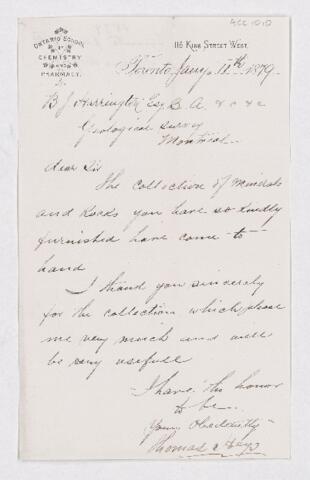 ACC 1010
ONTARIO SCHOOL
OF
CHEMISTRY
&
PHARMACY.
116 KING STREET WEST.
Toronto, Jany 11th 1879.
B J Harrington Esq B. A. &c &c
Geological Survey
Montreal
Dear Sir
The collection of minerals
and Rocks you have so kindly
furnished have come to
hand
I thank you sincerely
for the collection which please
me very much and will
be very usefull
I have the honor
to be
Yours Obediently
Thomas